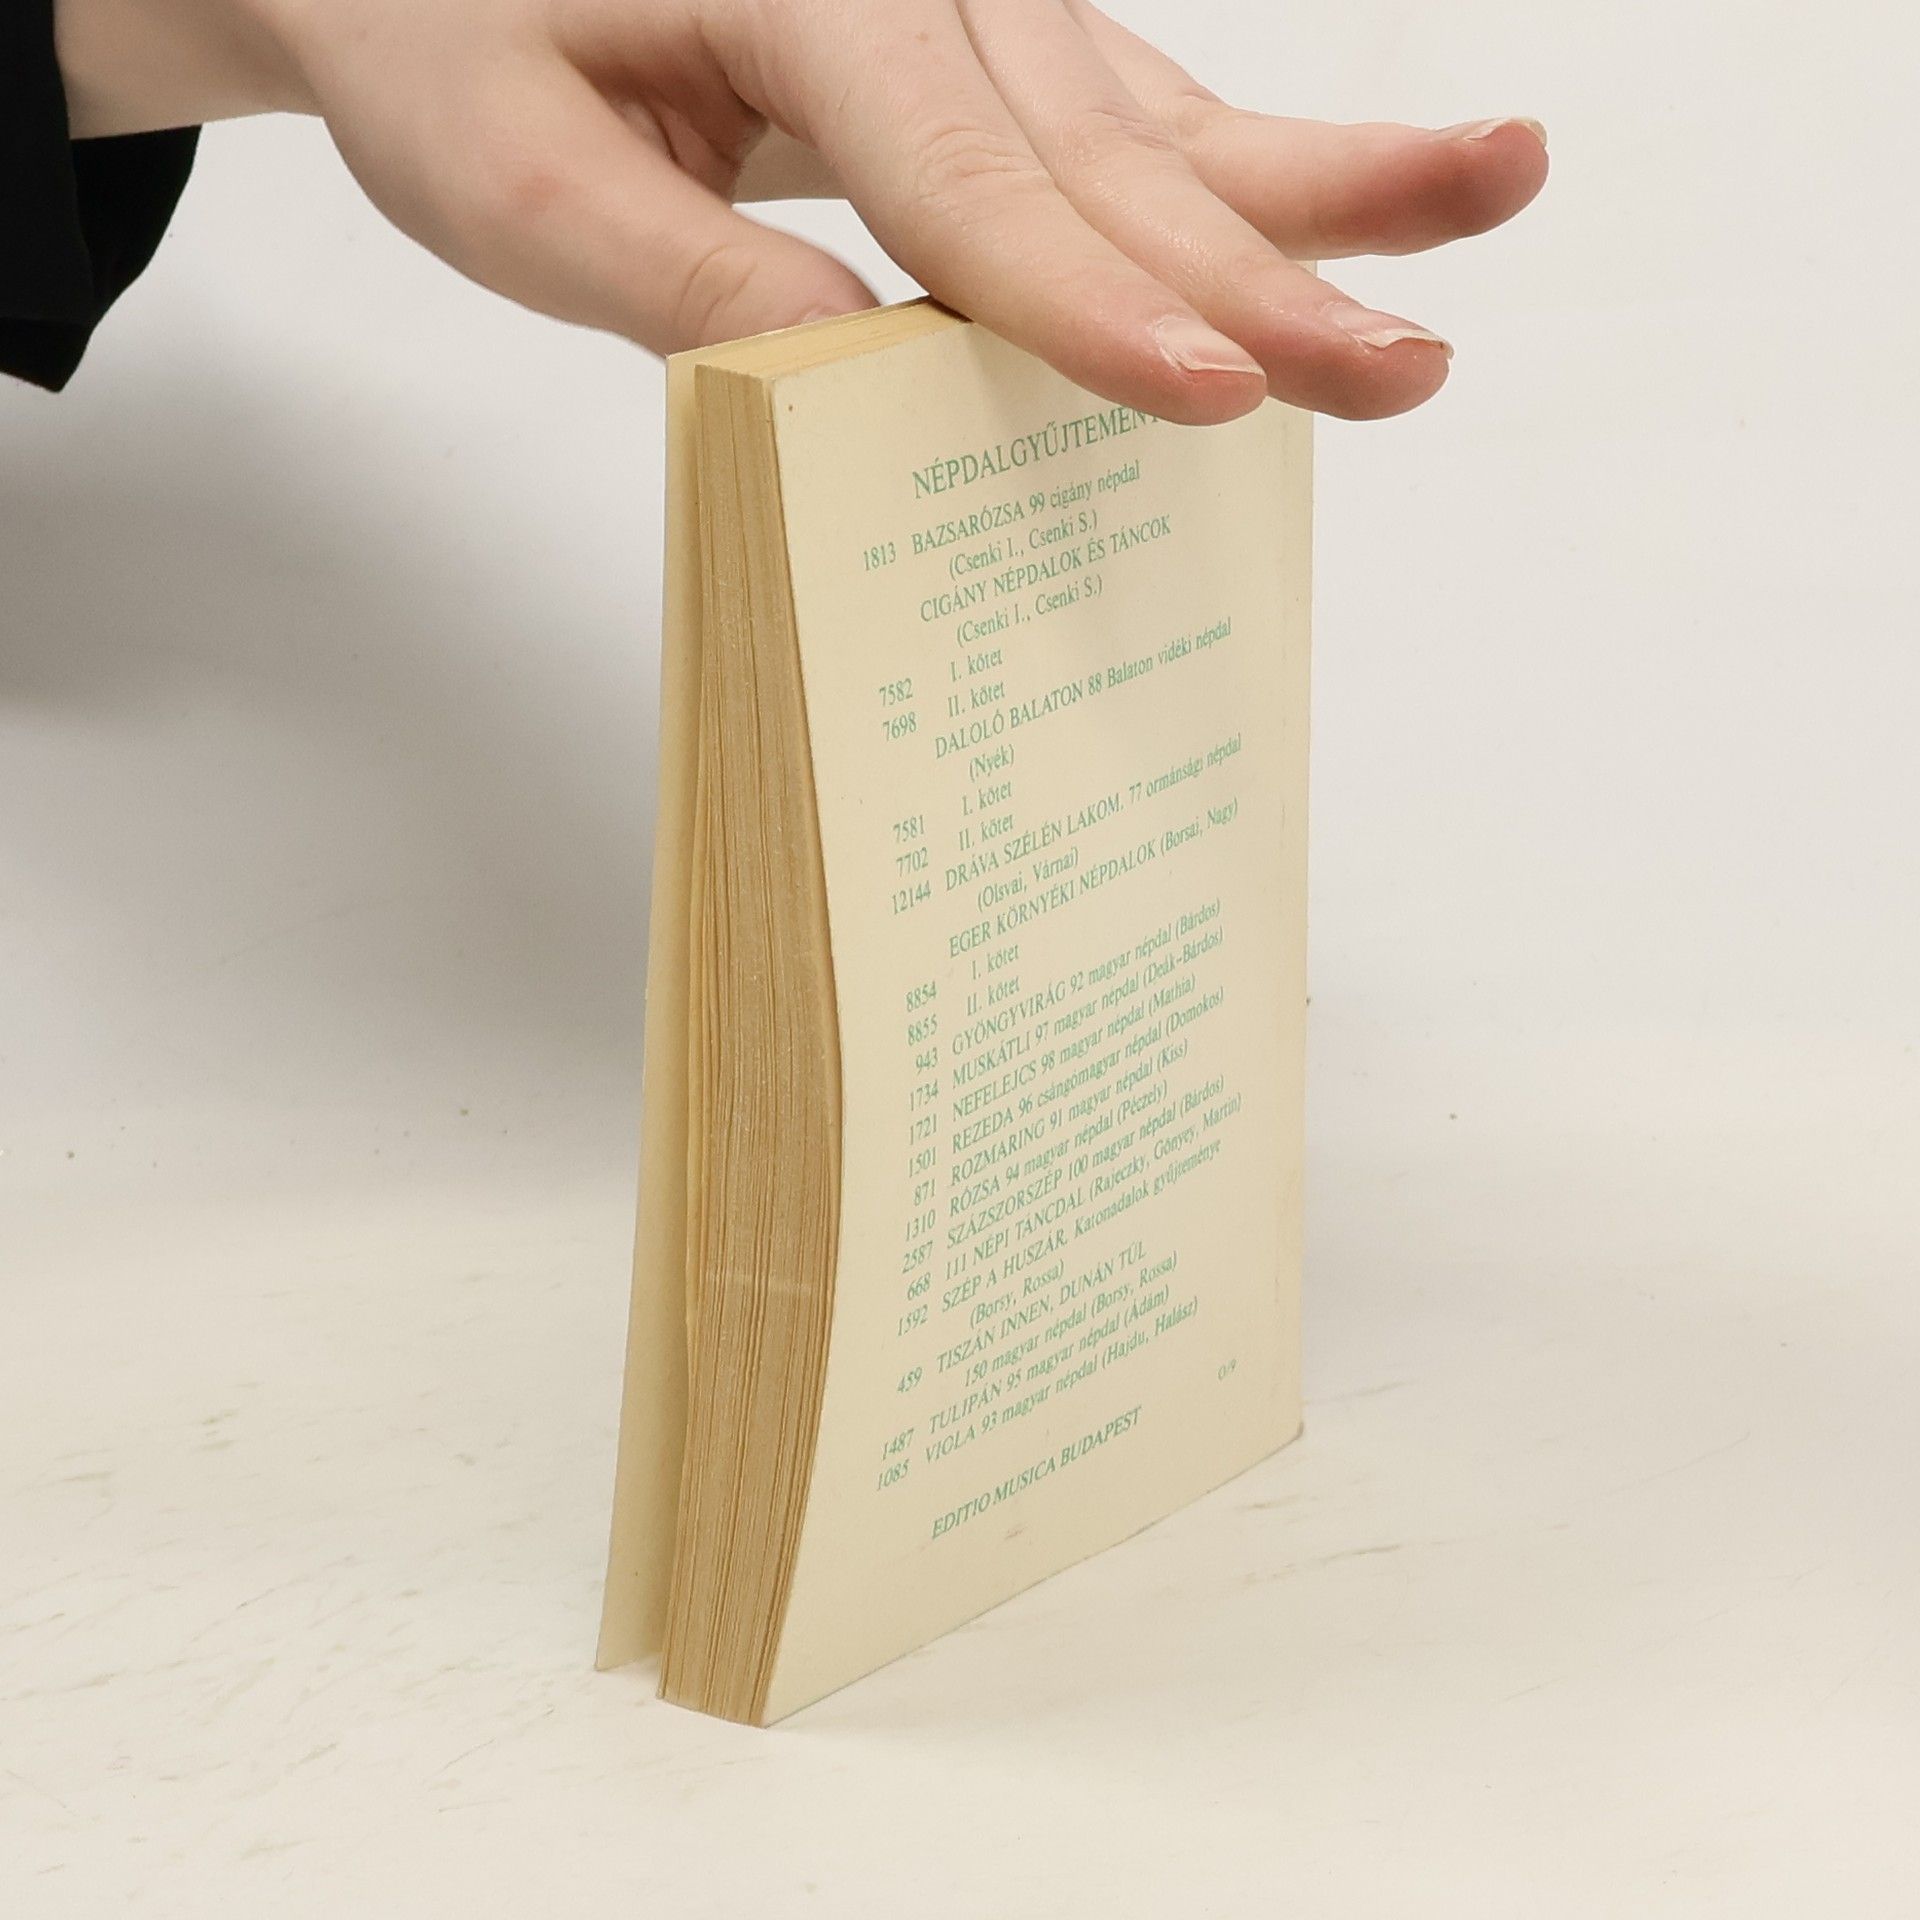 NÉPDALGYŰJTEMÉNY
1813 BAZSARÓZSA 99 cigány népdal
(Csenki I., Csenki S.)
CIGÁNY NÉPDALOK ÉS TÁNCOK
(Csenki I., Csenki S.)
7582 I. kötet
7698 II. kötet
DALOLÓ BALATON 88 Balaton vidéki népdal
(Nyék)
7581 I. kötet
7702 II. kötet
12144 DRÁVA SZÉLÉN LAKOM, 77 ormánsági népdal
(Olsvai, Várnai)
EGER KÖRNYÉKI NÉPDALOK (Borsai, Nagy)
8854 I. kötet
8855 II. kötet
943 GYÖNGYVIRÁG 92 magyar népdal (Bárdos)
1734 MUSKÁTLI 97 magyar népdal (Deák–Bárdos)
1721 NEFELEJCS 98 magyar népdal (Mathia)
1501 REZEDA 96 csángómagyar népdal (Domokos)
871 ROZMARING 91 magyar népdal (Kiss)
1310 RÓZSA 94 magyar népdal (Péczely)
2587 SZÁZSZORSZÉP 100 magyar népdal (Bárdos)
668 111 NÉPI TÁNCDAL (Rajeczky, Gönyey, Martin)
1592 SZÉP A HUSZÁR, Katonadalok gyűjteménye
(Borsy, Rossa)
459 TISZÁN INNEN, DUNÁN TÚL
150 magyar népdal (Borsy, Rossa)
1487 TULIPÁN 95 magyar népdal (Ádám)
1085 VIOLA 93 magyar népdal (Hajdu, Halász)
O/9
EDITIO MUSICA BUDAPEST